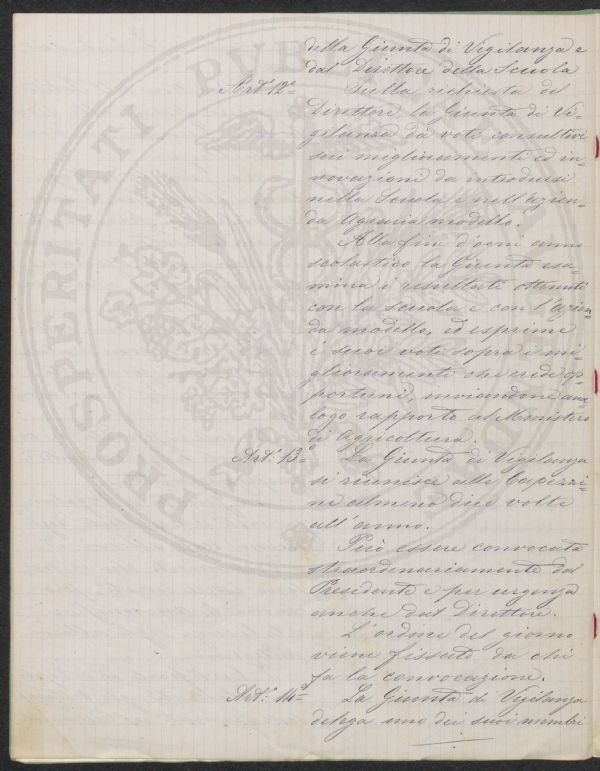 della Giunta di Vigilanza e
dal Direttore della Scuola
Art.° 12° = Sulla richiesta del
Direttore, la Giunta di Vi-
gilanza dà voti consultivi
sui miglioramenti ed in-
novazione da introdursi
nella Scuola e nell'azien-
da Agraria modello.
Alla fine d'ogni anno
scolastico la Giunta esa-
mina i resultati ottenuti
con la scuola e con l'azien-
da modello, ed esprime
i suoi voti sopra i mi-
glioramenti che crede op-
portuni, inviandone ana-
logo rapporto al Ministero
di Agricoltura.
Art.° 13° = La Giunta di Vigilanza
si riunisce alle Capezzi-
ne almeno due volte
all'anno.
Può essere convocata
straordinariamente dal
Presidente e per urgenza
anche dal Direttore.
L'ordine del giorno
viene fissato da chi
fa la convocazione.
Art.° 14° = La Giunta di Vigilanza
delega uno dei suoi membri
PROSPERITATI PUBLI